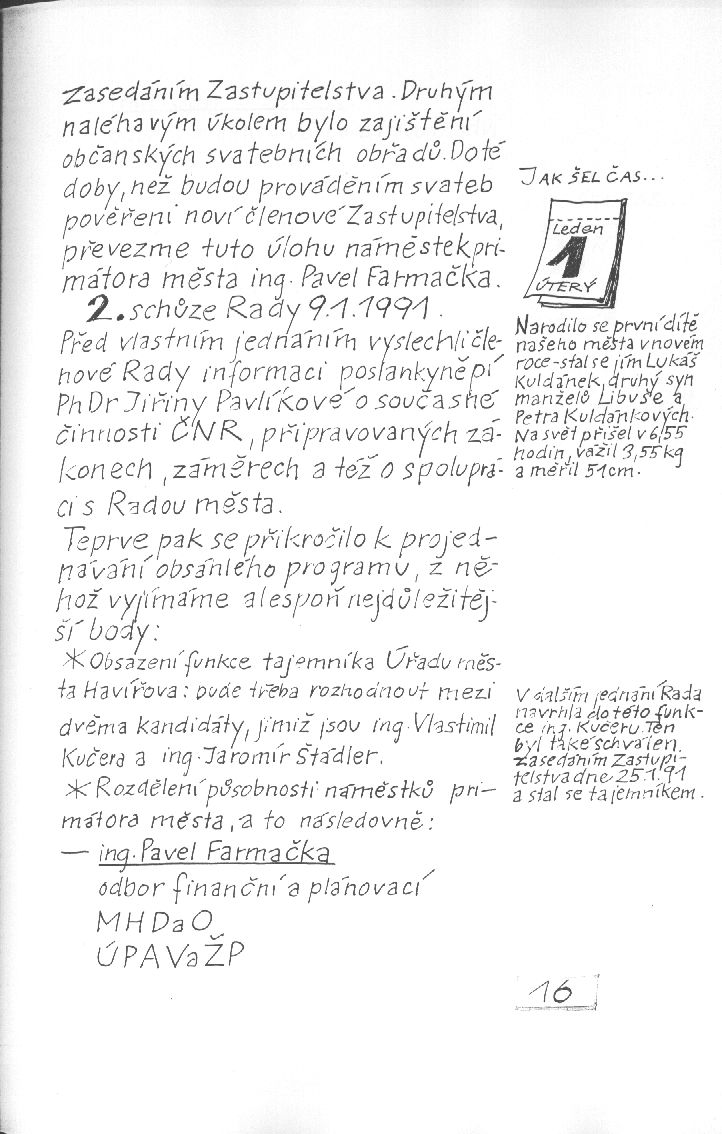 zasedáním Zastupitelstva. Druhým
naléhavým úkolem bylo zajištění
občanských svatebních obřadů. Do té
doby, než budou prováděním svateb
pověřeni noví členové Zastupitelstva,
převezme tuto úlohu náměstek pri-
mátora města ing. Pavel Farmačka.
2. schůze Rady 9.1.1991.
Před vlastním jednáním vyslechli čle-
nové Rady informaci poslankyně pí
PhDr Jiřiny Pavlíkové o současné
činnosti ČNR, připravovaných zá-
konech, záměrech a též o spoluprá-
ci s Radou města.
Teprve pak se přikročilo k projed-
návání obsáhlého programu, z ně-
hož vyjímáme alespoň nejdůležitěj-
ší body:
* Obsazení funkce tajemníka Úřadu měs-
ta Havířova: bude třeba rozhodnout mezi
dvěma kandidáty, jimiž jsou ing. Vlastimil
Kučera a ing. Jaromír Štádler.
* Rozdělení působnosti náměstků pri-
mátora města, a to následovně:
— ing. Pavel Farmačka
odbor finanční a plánovací
MHDaO
ÚPAVaŽP
JAK ŠEL ČAS...
Leden
1
ÚTERÝ
Narodilo se první dítě
našeho města v novém
roce - stal se jím Lukáš
Kuldánek, druhý syn
manželů Libuše a
Petra Kuldánkových.
Na svět přišel v 6,55
hodin, vážil 3,55 kg
a měřil 51 cm.
V dalším jednání Rada
navrhla do této funk-
ce ing. Kučeru. Ten
byl také schválen.
zasedáním Zastupi-
telstva dne 25.1.91
a stal se tajemníkem.
16